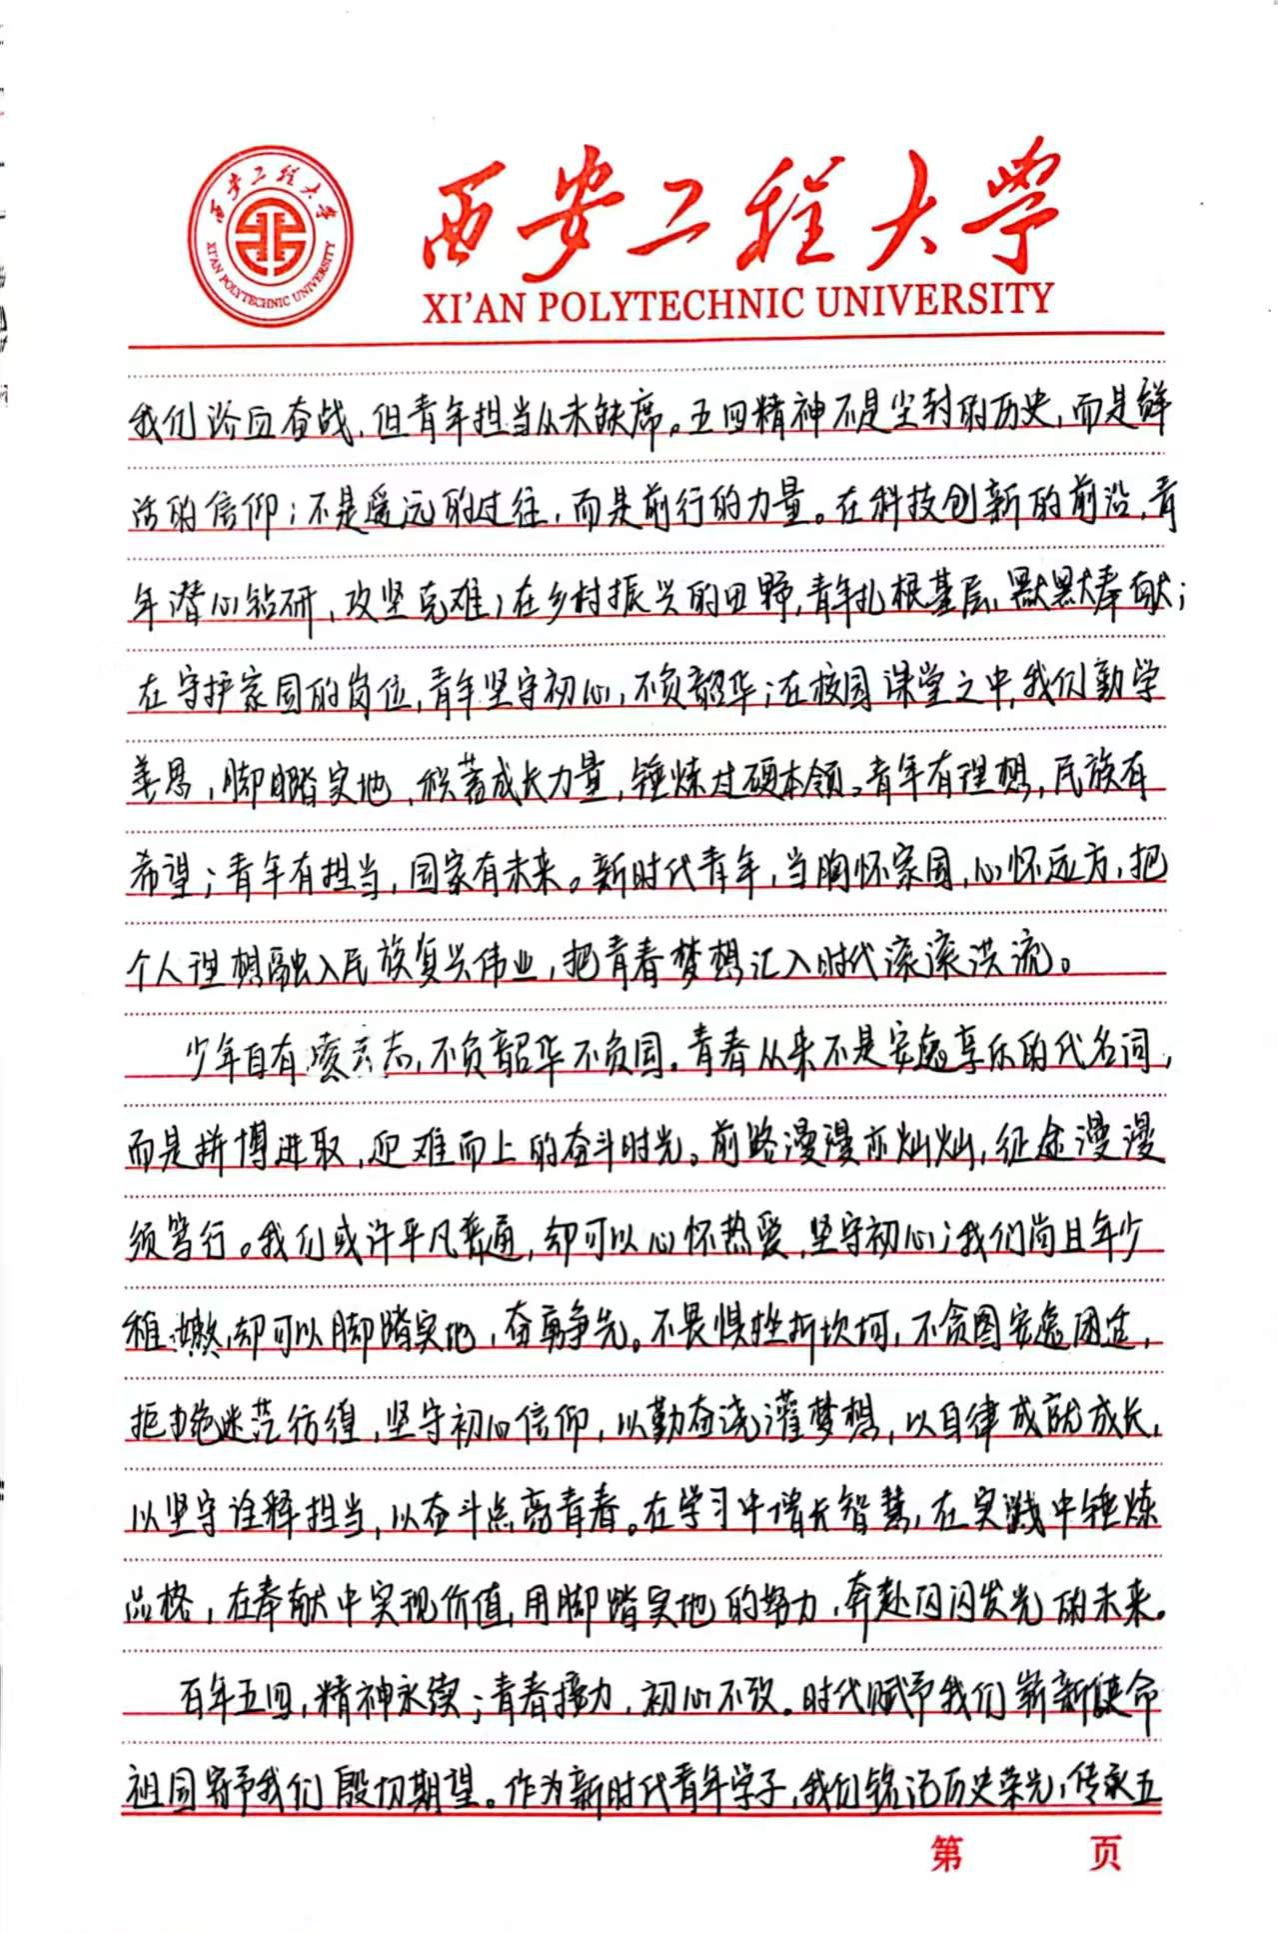 西安工程大学
XI'AN POLYTECHNIC UNIVERSITY
西安工程大学
XI'AN POLYTECHNIC UNIVERSITY
我们浴血奋战，但青年担当从未缺席。五四精神不是尘封的历史，而是鲜
活的信仰；不是遥远的过往，而是前行的力量。在科技创新的前沿，青
年潜心钻研，攻坚克难；在乡村振兴的田野，青年扎根基层，默默奉献；
在守护家园的岗位，青年坚守初心，不负韶华；在校园课堂之中，我们勤学
善思，脚踏实地，积蓄成长力量，锤炼过硬本领。青年有理想，民族有
希望；青年有担当，国家有未来。新时代青年，当胸怀家国，心怀远方，把
个人理想融入民族复兴伟业，把青春梦想汇入时代滚滚洪流。
少年自有凌云志，不负韶华不负国。青春从来不是安逸享乐的代名词，
而是拼搏进取，迎难而上的奋斗时光。前路漫漫亦灿灿，征途漫漫
须笃行。我们或许平凡普通，却可以心怀热爱，坚守初心；我们尚且年少
稚嫩，却可以脚踏实地，奋勇争先。不畏惧挫折坎坷，不贪图安逸闲适，
拒绝迷茫彷徨，坚守初心信仰，以勤奋浇灌梦想，以自律成就成长，
以坚守诠释担当，以奋斗点亮青春。在学习中增长智慧，在实践中锤炼
品格，在奉献中实现价值，用脚踏实地的努力，奔赴闪闪发光的未来。
百年五四，精神永续；青春接力，初心不改。时代赋予我们崭新使命
祖国寄予我们殷切期望。作为新时代青年学子，我们铭记历史荣光，传承五
第 页